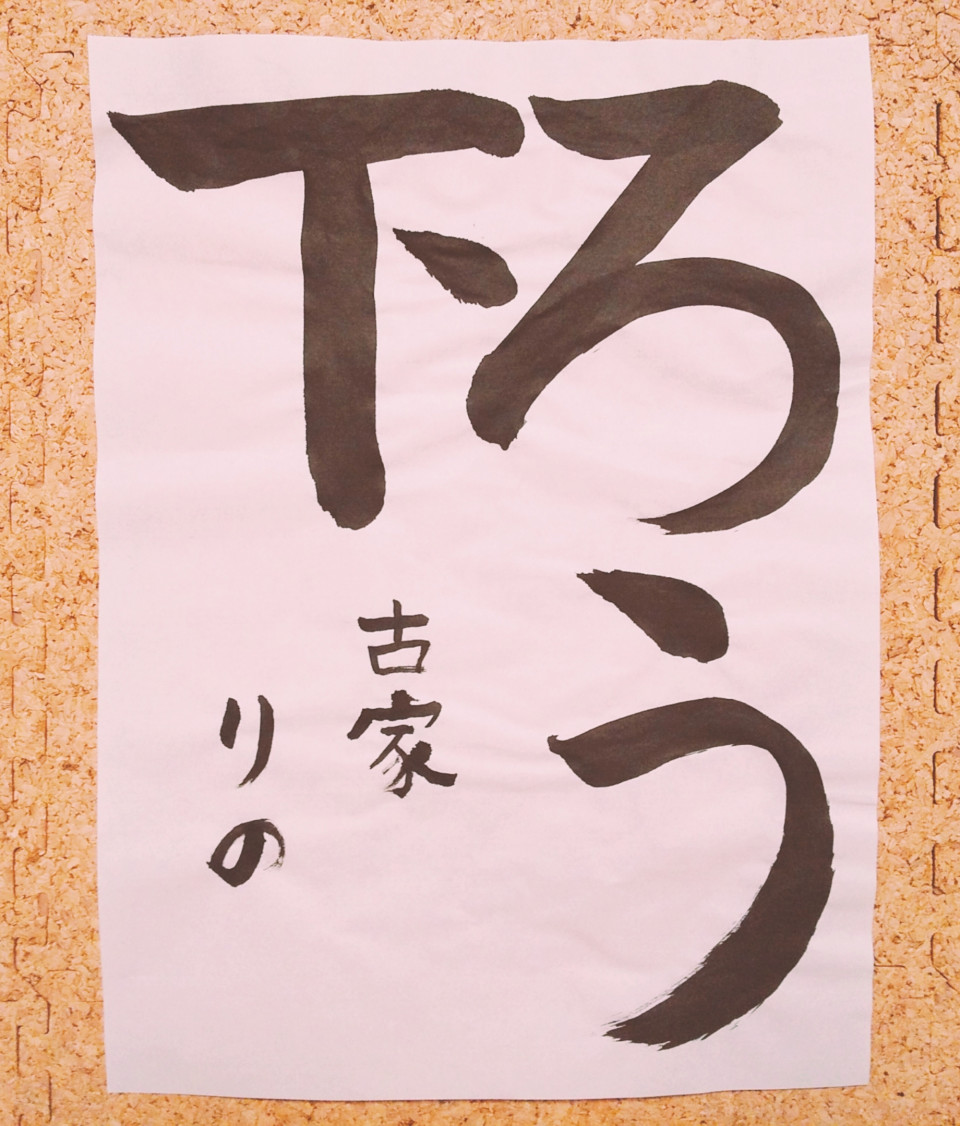 ろう
下
古家
りの